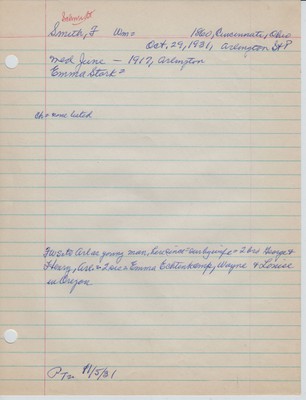 Smith, F Wm= 1860, Cincinnati, Ohio
Oct. 29, 1931, Arlington
Med June — 1917, Arlington
Emma Stork =
Ch = none listed
to Arl as young man, = 2 bro George &
Henry, Arl. & 2 sis = Emma Echtenkamp, Wayne & Louise
in Oregon
11/5/31